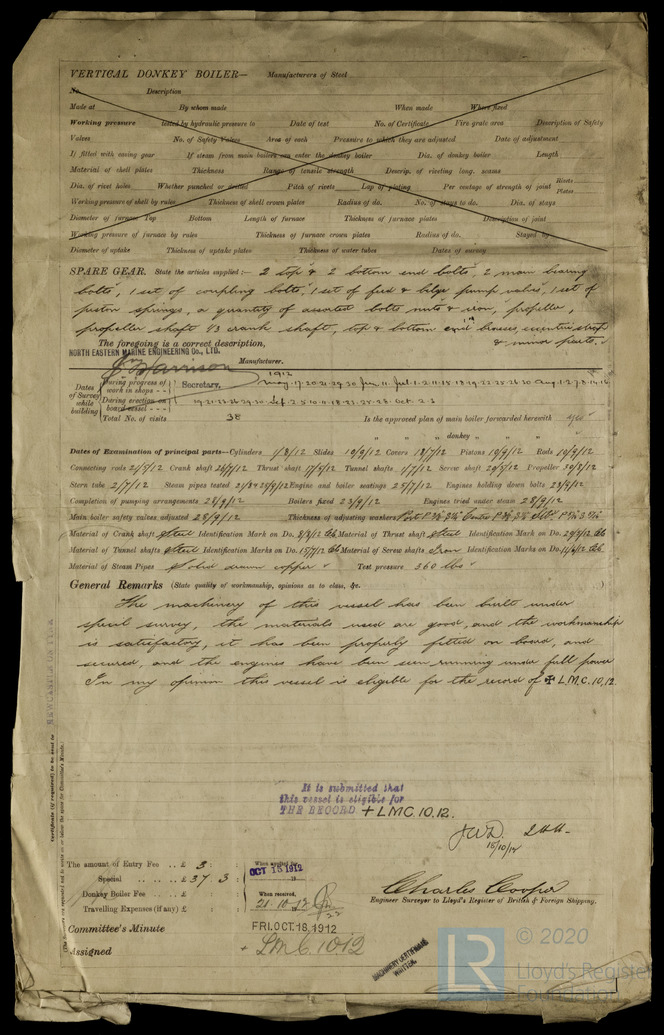 VERTICAL DONKEY BOILER— Manufacturers of Steel
No. Description
Made at By whom made When made Where fixed
Working pressure tested by hydraulic pressure to Date of test No. of Certificate Fire grate area Description of Safety
Valves No. of Safety Valves Area of each Pressure to which they are adjusted Date of adjustment
If fitted with easing gear If steam from main boilers can enter the donkey boiler Dia. of donkey boiler Length
Material of shell plates Thickness Range of tensile strength Descrip. of riveting long. seams
Dia. of rivet holes Whether punched or drilled Pitch of rivets Lap of plating Per centage of strength of joint Rivets Plates
Working pressure of shell by rules Thickness of shell crown plates Radius of do. No. of stays to do. Dia. of stays
Diameter of furnace Top Bottom Length of furnace Thickness of furnace plates Description of joint
Working pressure of furnace by rules Thickness of furnace crown plates Radius of do. Stayed by
Diameter of uptake Thickness of uptake plates Thickness of water tubes Dates of survey
SPARE GEAR. State the articles supplied:— 2 top & 2 bottom end bolts, 2 main bearing
bolts, 1 set of coupling bolts, 1 set of feed & bilge pump valves, 1 set of
piston springs, a quantity of assorted bolts nuts & iron, propeller,
propeller shaft 1/3 crank shaft, top & bottom end brasses, eccentric strap
& minor parts.
The foregoing is a correct description,
NORTH EASTERN MARINE ENGINEERING Co., LTD.
Harrison Manufacturer.
Secretary.
Dates of Survey while building
During progress of work in shops - - 1912 May 17.20.24.29.30 Jun 11. Jul 1.2.11.15.18.19.22.25.26.30 Aug 1.2.7.8.14.16
During erection on board vessel - - - 19.21.23.26.29.30 Sep. 2.5.10.11.18.23.25.28. Oct. 2.3
Total No. of visits 38 Is the approved plan of main boiler forwarded herewith
" " " donkey " " "
Dates of Examination of principal parts—Cylinders 1/8/12 Slides 10/9/12 Covers 18/7/12 Pistons 10/9/12 Rods 10/9/12
Connecting rods 2/9/12 Crank shaft 26/7/12 Thrust shaft 7/8/12 Tunnel shafts 1/7/12 Screw shaft 20/8/12 Propeller 30/8/12
Stern tube 2/7/12 Steam pipes tested Engine and boiler seatings 25/7/12 Engines holding down bolts 23/9/12
Completion of pumping arrangements 28/9/12 Boilers fixed 23/9/12 Engines tried under steam 28/9/12
Main boiler safety valves adjusted 28/9/12 Thickness of adjusting washers
Material of Crank shaft Steel Identification Mark on Do. Material of Thrust shaft Steel Identification Mark on Do.
Material of Tunnel shafts Steel Identification Marks on Do. Material of Screw shafts Iron Identification Marks on Do.
Material of Steam Pipes Solid drawn copper Test pressure 360 lbs
General Remarks (State quality of workmanship, opinions as to class, &c.
The machinery of this vessel has been built under
special survey, the materials used are good, and the workmanship
is satisfactory, it has been properly fitted on board, and
secured, and the engines have been seen running under full power
In my opinion this vessel is eligible for the record of ✠ L.M.C. 10,12.
NEWCASTLE ON TYNE
Certificate (if required) to be sent to
It is submitted that
this vessel is eligible for
THE RECORD + LMC. 10.12.
J.W.D.
15/10/12
The amount of Entry Fee .. £ 3 :
Special .. .. .. £ 37 3 :
Donkey Boiler Fee .. .. £
Travelling Expenses (if any) £
When applied for,
OCT 15 1912
When received,
21.10.12
Charles Cooper
Engineer Surveyor to Lloyd's Register of British & Foreign Shipping.
Committee's Minute FRI. OCT. 18. 1912
Assigned + LMC. 10.12
MACHINERY CERTIFICATE
WRITTEN.
LR
© 2020
Lloyd's Register
Foundation